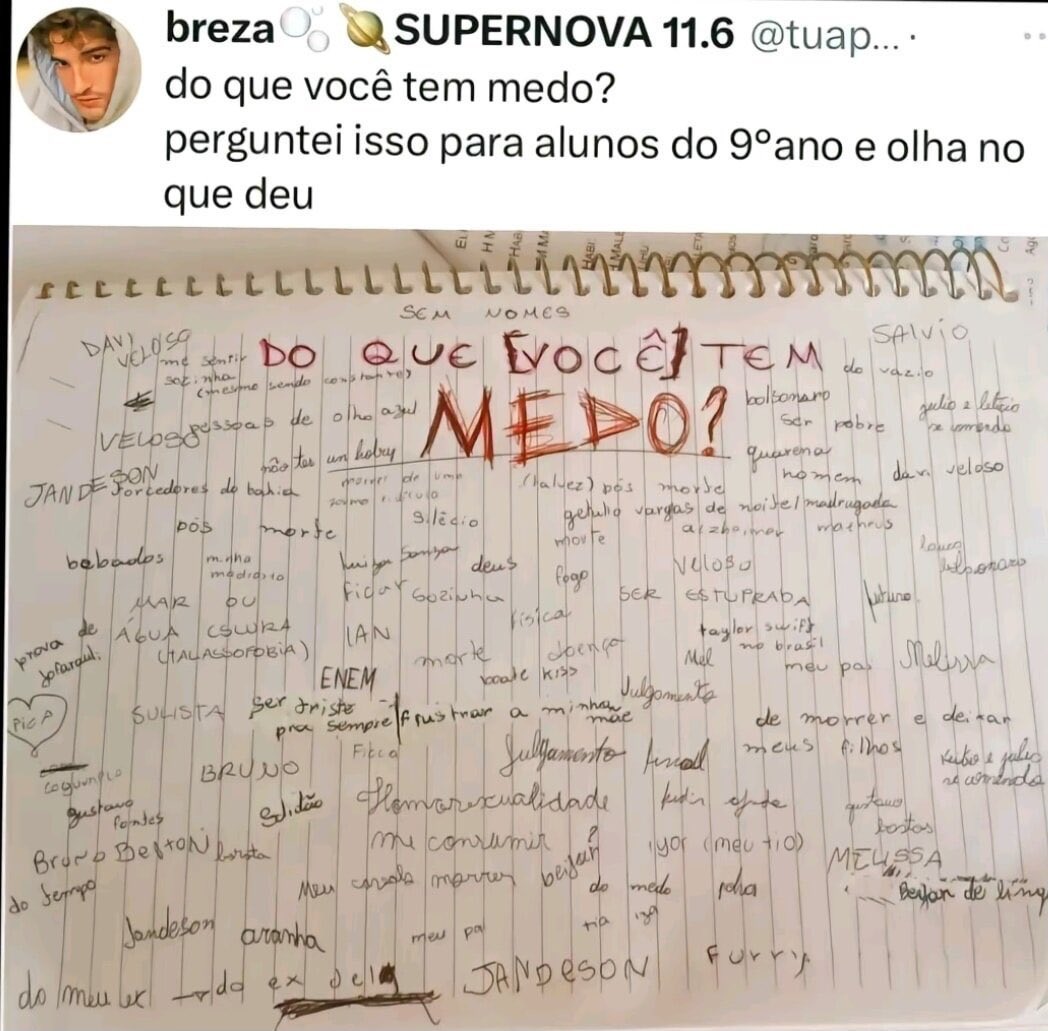 breza SUPERNOVA 11.6 @tuap... ·
do que você tem medo?
perguntei isso para alunos do 9ºano e olha no
que deu
SEM NOMES
DAVI VELOSO
me sentir sozinha (mesmo sendo constante)
DO QUE [VOCÊ] TEM
MEDO?
SALVIO
do vazio
VELOSO
pessoas de olho azul
bolsonaro
ser pobre
julio e leticia se comendo
JANDESON
não ter um hobby
quarena
homem
davi veloso
torcedores do bahia
morrer de uma
(talvez) pós morte
getulio vargas de noite/madrugada
pós morte
silêcio
morte
alzheimer
matheus
bebados
minha madrasta
luiza sonza
deus
fogo
VELOSO
MAR OU
ÁGUA ESCURA
(TALASSOFOBIA)
ficar sozinha
SER ESTUPRADA
futuro
física
IAN
prova de
morte
doença
taylor swift no brasil
Mel
meu pai
Melissa
ENEM
boate kiss
Julgamento
PICA
SULISTA
ser triste pra sempre
frustrar a minha mãe
de morrer e deixar
meus filhos
BRUNO
Julgamento final
gustavo fontes
solidão
Homorexualidade
gustavo bostas
Bruno Betton
me consumir
igor (meu tio)
MELISSA
do tempo
beijar?
do medo
Beijar de líng
Jandeson
aranha
meu pai
do meu ex
JANDESON
Furry